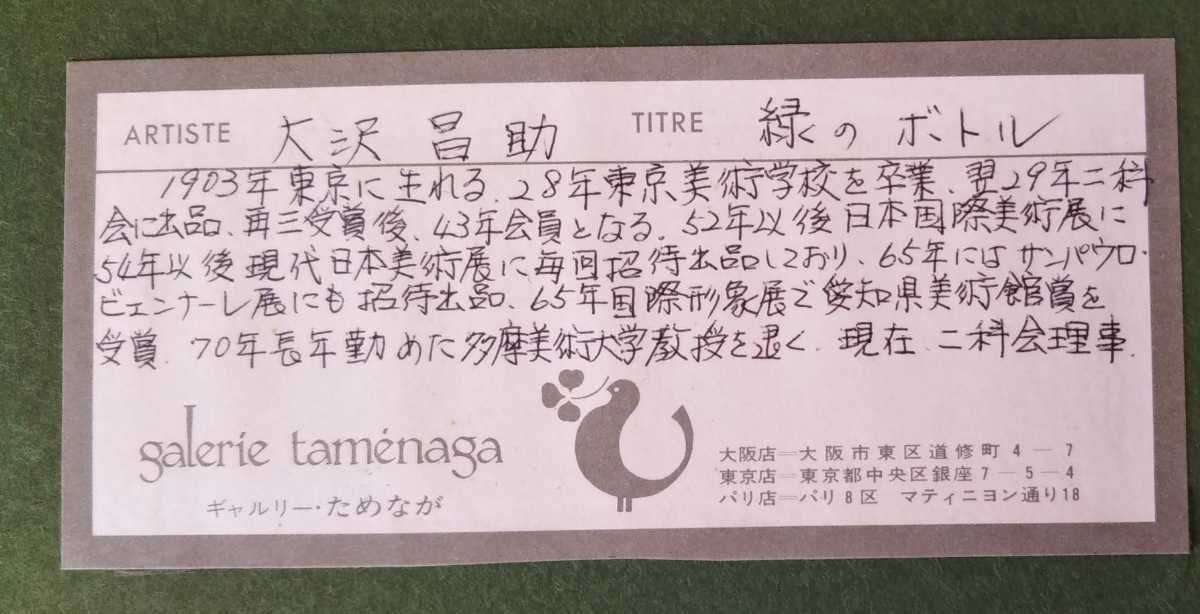 ARTISTE 大沢 昌助 TITRE 緑の ボトル
1903年東京に生れる. 28年東京美術学校を卒業、翌29年二科
会に出品、再三受賞後、43年会員となる. 52年以後日本国際美術展に
54年以後現代日本美術展に毎回招待出品しており、65年にはサンパウロ・
ビェンナーレ展にも招待出品、65年国際形象展で愛知県美術館賞を
受賞. 70年長年勤めた多摩美術大学教授を退く. 現在 二科会理事.
galerie taménaga
ギャルリー・ためなが
大阪店=大阪市東区道修町4―7
東京店=東京都中央区銀座7―5―4
パリ店=パリ8区 マティニヨン通り18